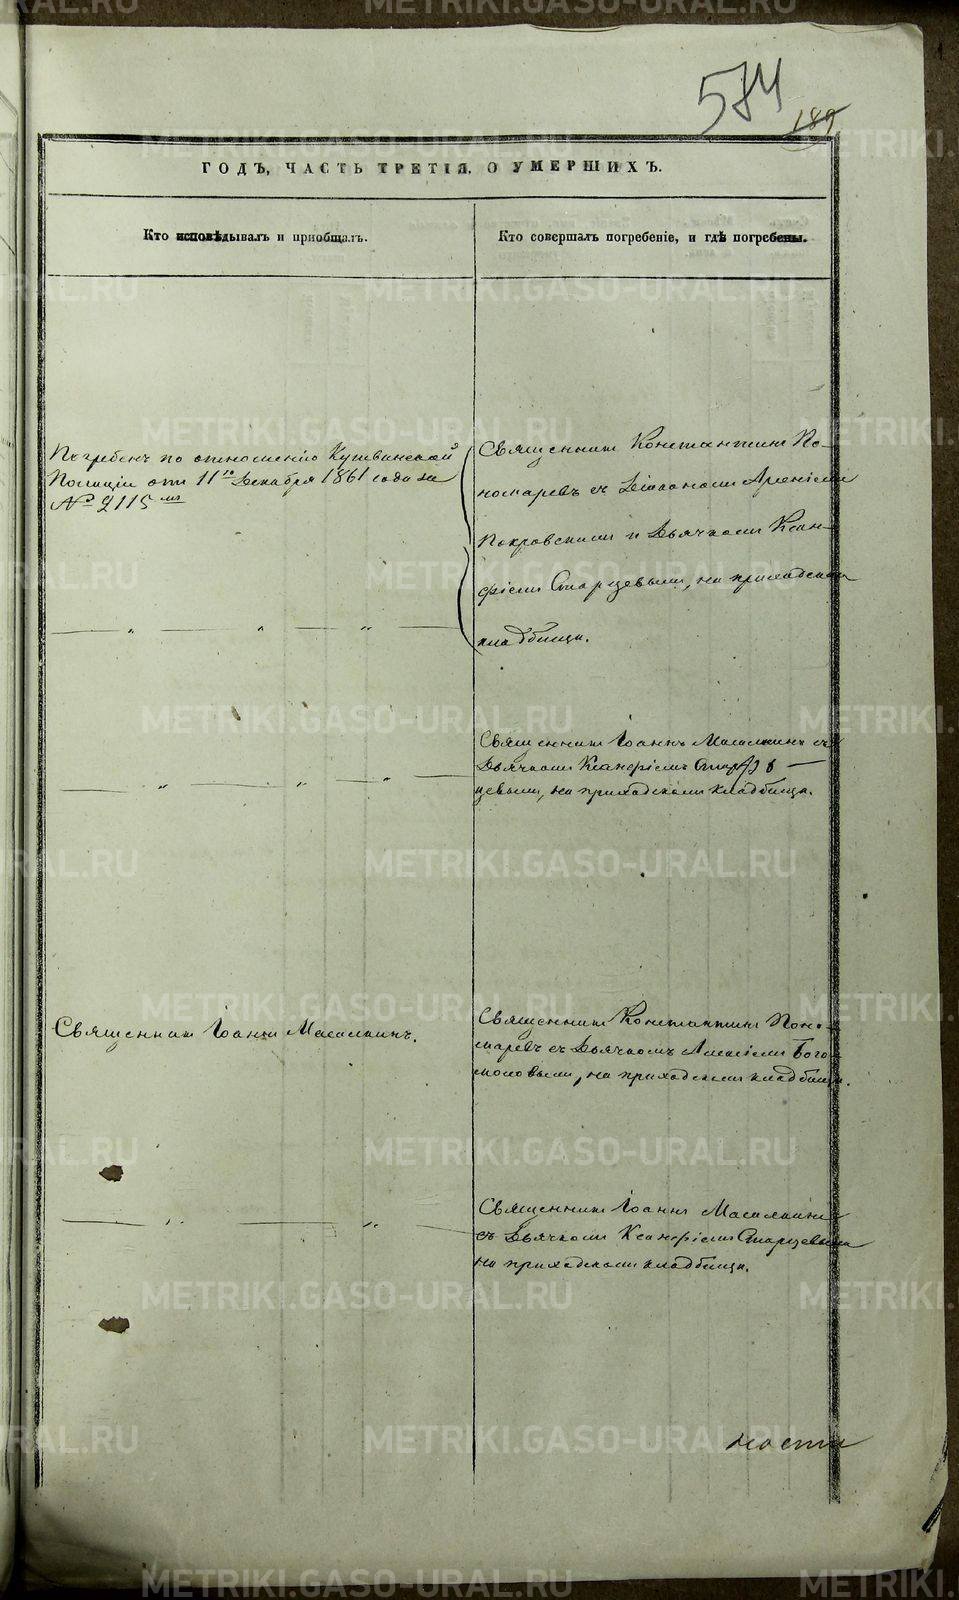 584
189
ГОДЪ, ЧАСТЬ ТРЕТІЯ. О УМЕРШИХЪ.
Кто исповѣдывалъ и пріобщалъ.
Кто совершалъ погребеніе, и гдѣ погребены.
Погребенъ по отношенію Кушвинской
Полиціи отъ 11го Декабря 1861 года за
№ 2115 мъ
Священникъ Константинъ По-
номаревъ съ Діакономъ Арсеніемъ
Покровскимъ и Дьячкомъ Ксан-
фіемъ Старцевымъ, на приходскомъ
кладбищѣ.
Священникъ Іоаннъ Масалкинъ съ
Дьячкомъ Ксанфіемъ Стар
цевымъ, на приходскомъ кладбищѣ.
Священникъ Іоаннъ Масалкинъ.
Священникъ Константинъ Поно-
маревъ съ Дьячкомъ Алексіемъ Бого-
моловымъ, на приходскомъ кладбищѣ.
Священникъ Іоаннъ Масалкинъ
съ Дьячкомъ Ксанфіемъ Старцевымъ
на приходскомъ кладбищѣ.
ности
METRIKI.GASO-URAL.RU